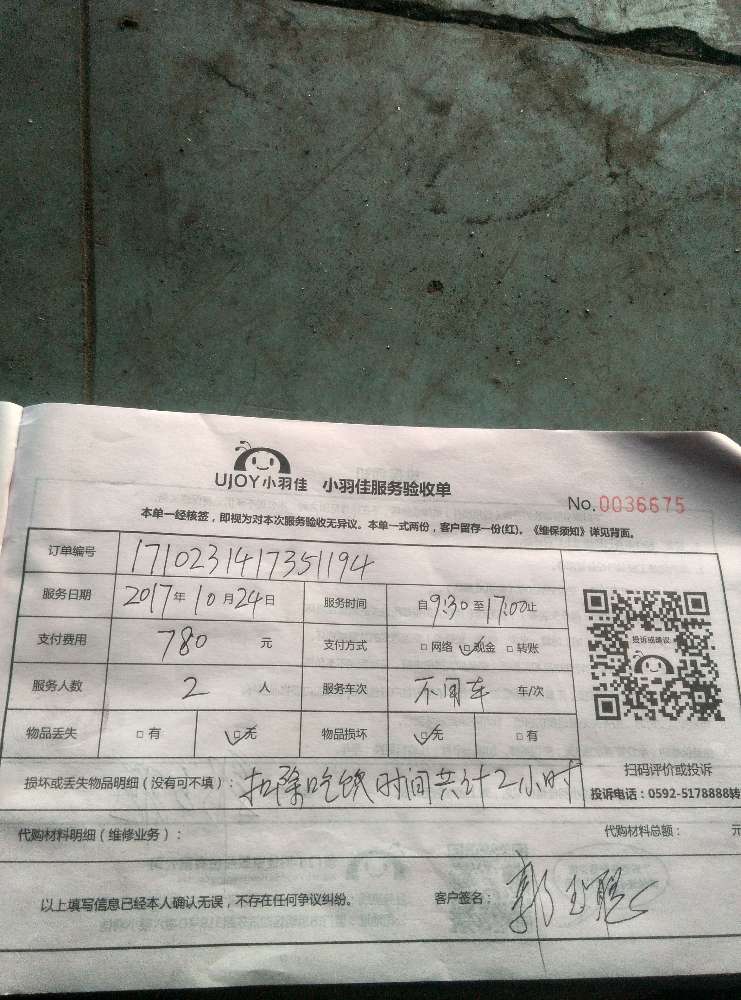 UJOY小羽佳 小羽佳服务验收单
No.0036675
本单一经核签，即视为对本次服务验收无异议。本单一式两份，客户留存一份(红)。《维保须知》详见背面。
订单编号 1710231417351194
服务日期 2017年10月24日 服务时间 自9:30至17:00止
支付费用 780 元 支付方式 □网络 ☑现金 □转账
服务人数 2 人 服务车次 不用车 车/次
物品丢失 □有 ☑无 物品损坏 ☑无 □有
投诉或建议
扫码评价或投诉
损坏或丢失物品明细（没有可不填）： 扣除吃饭时间共计2小时
投诉电话：0592-5178888转
代购材料明细（维修业务）： 代购材料总额： 元
以上填写信息已经本人确认无误，不存在任何争议纠纷。 客户签名： 郭玉聪